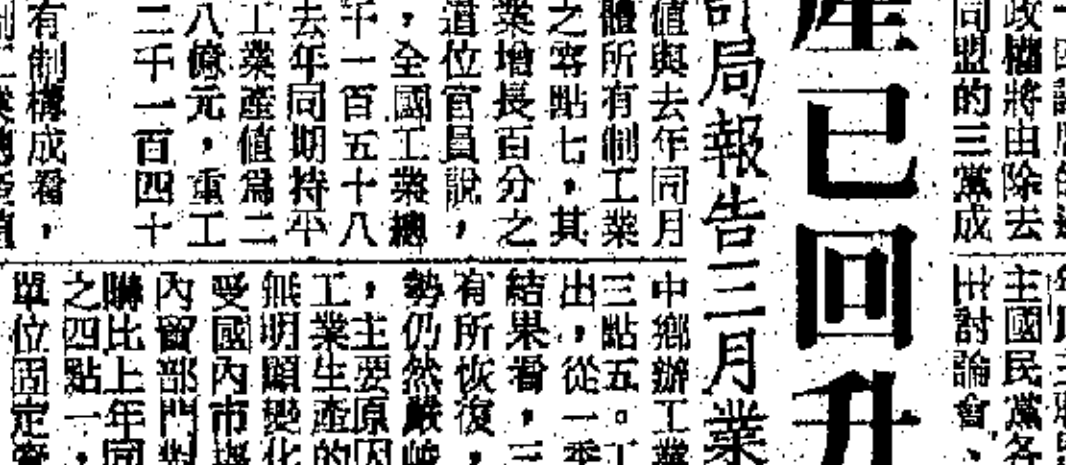 政權將由除去
同盟的三黨成
主國民黨各
討論會、
產已回升
司局報告三月業
值與去年同月
體所有制工業
之零點七，其
業增長百分之
道位官員說，
，全國工業總
千一百五十八
去年同期持平
工業產值爲二
八億元，重工
二千一百四十
有制構成看，
中鄉辦工業
三點五。工
出，從一季
結果看，三
有所恢復，
勢仍然嚴峻
，主要原因
工業生產的
無明顯變化
受國內市場
內貿部門對
購比上年同
之四點一，
單位固定資